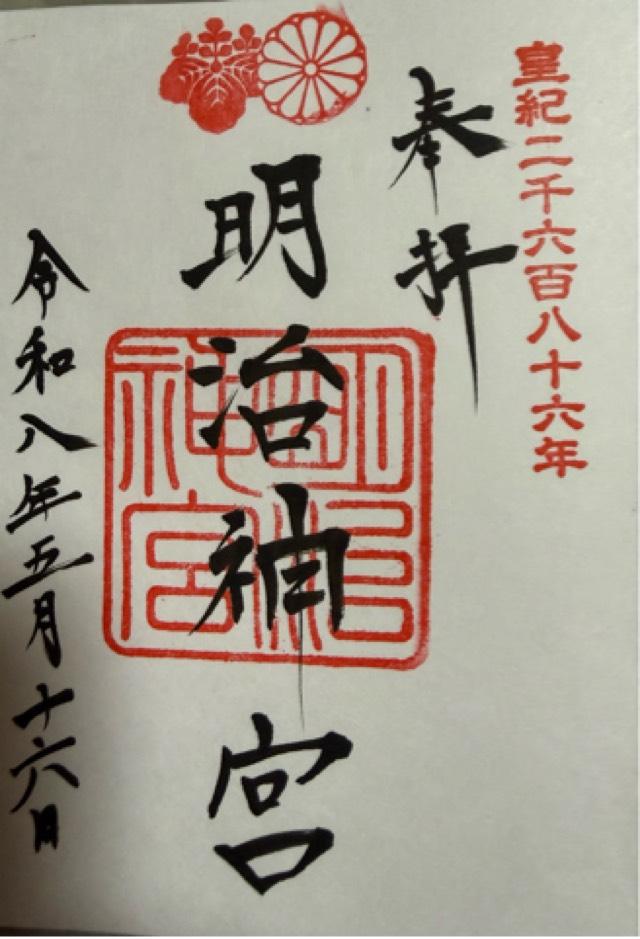 皇紀二千六百八十六年
奉拝
明治神宮
明治神宮
令和八年五月十六日